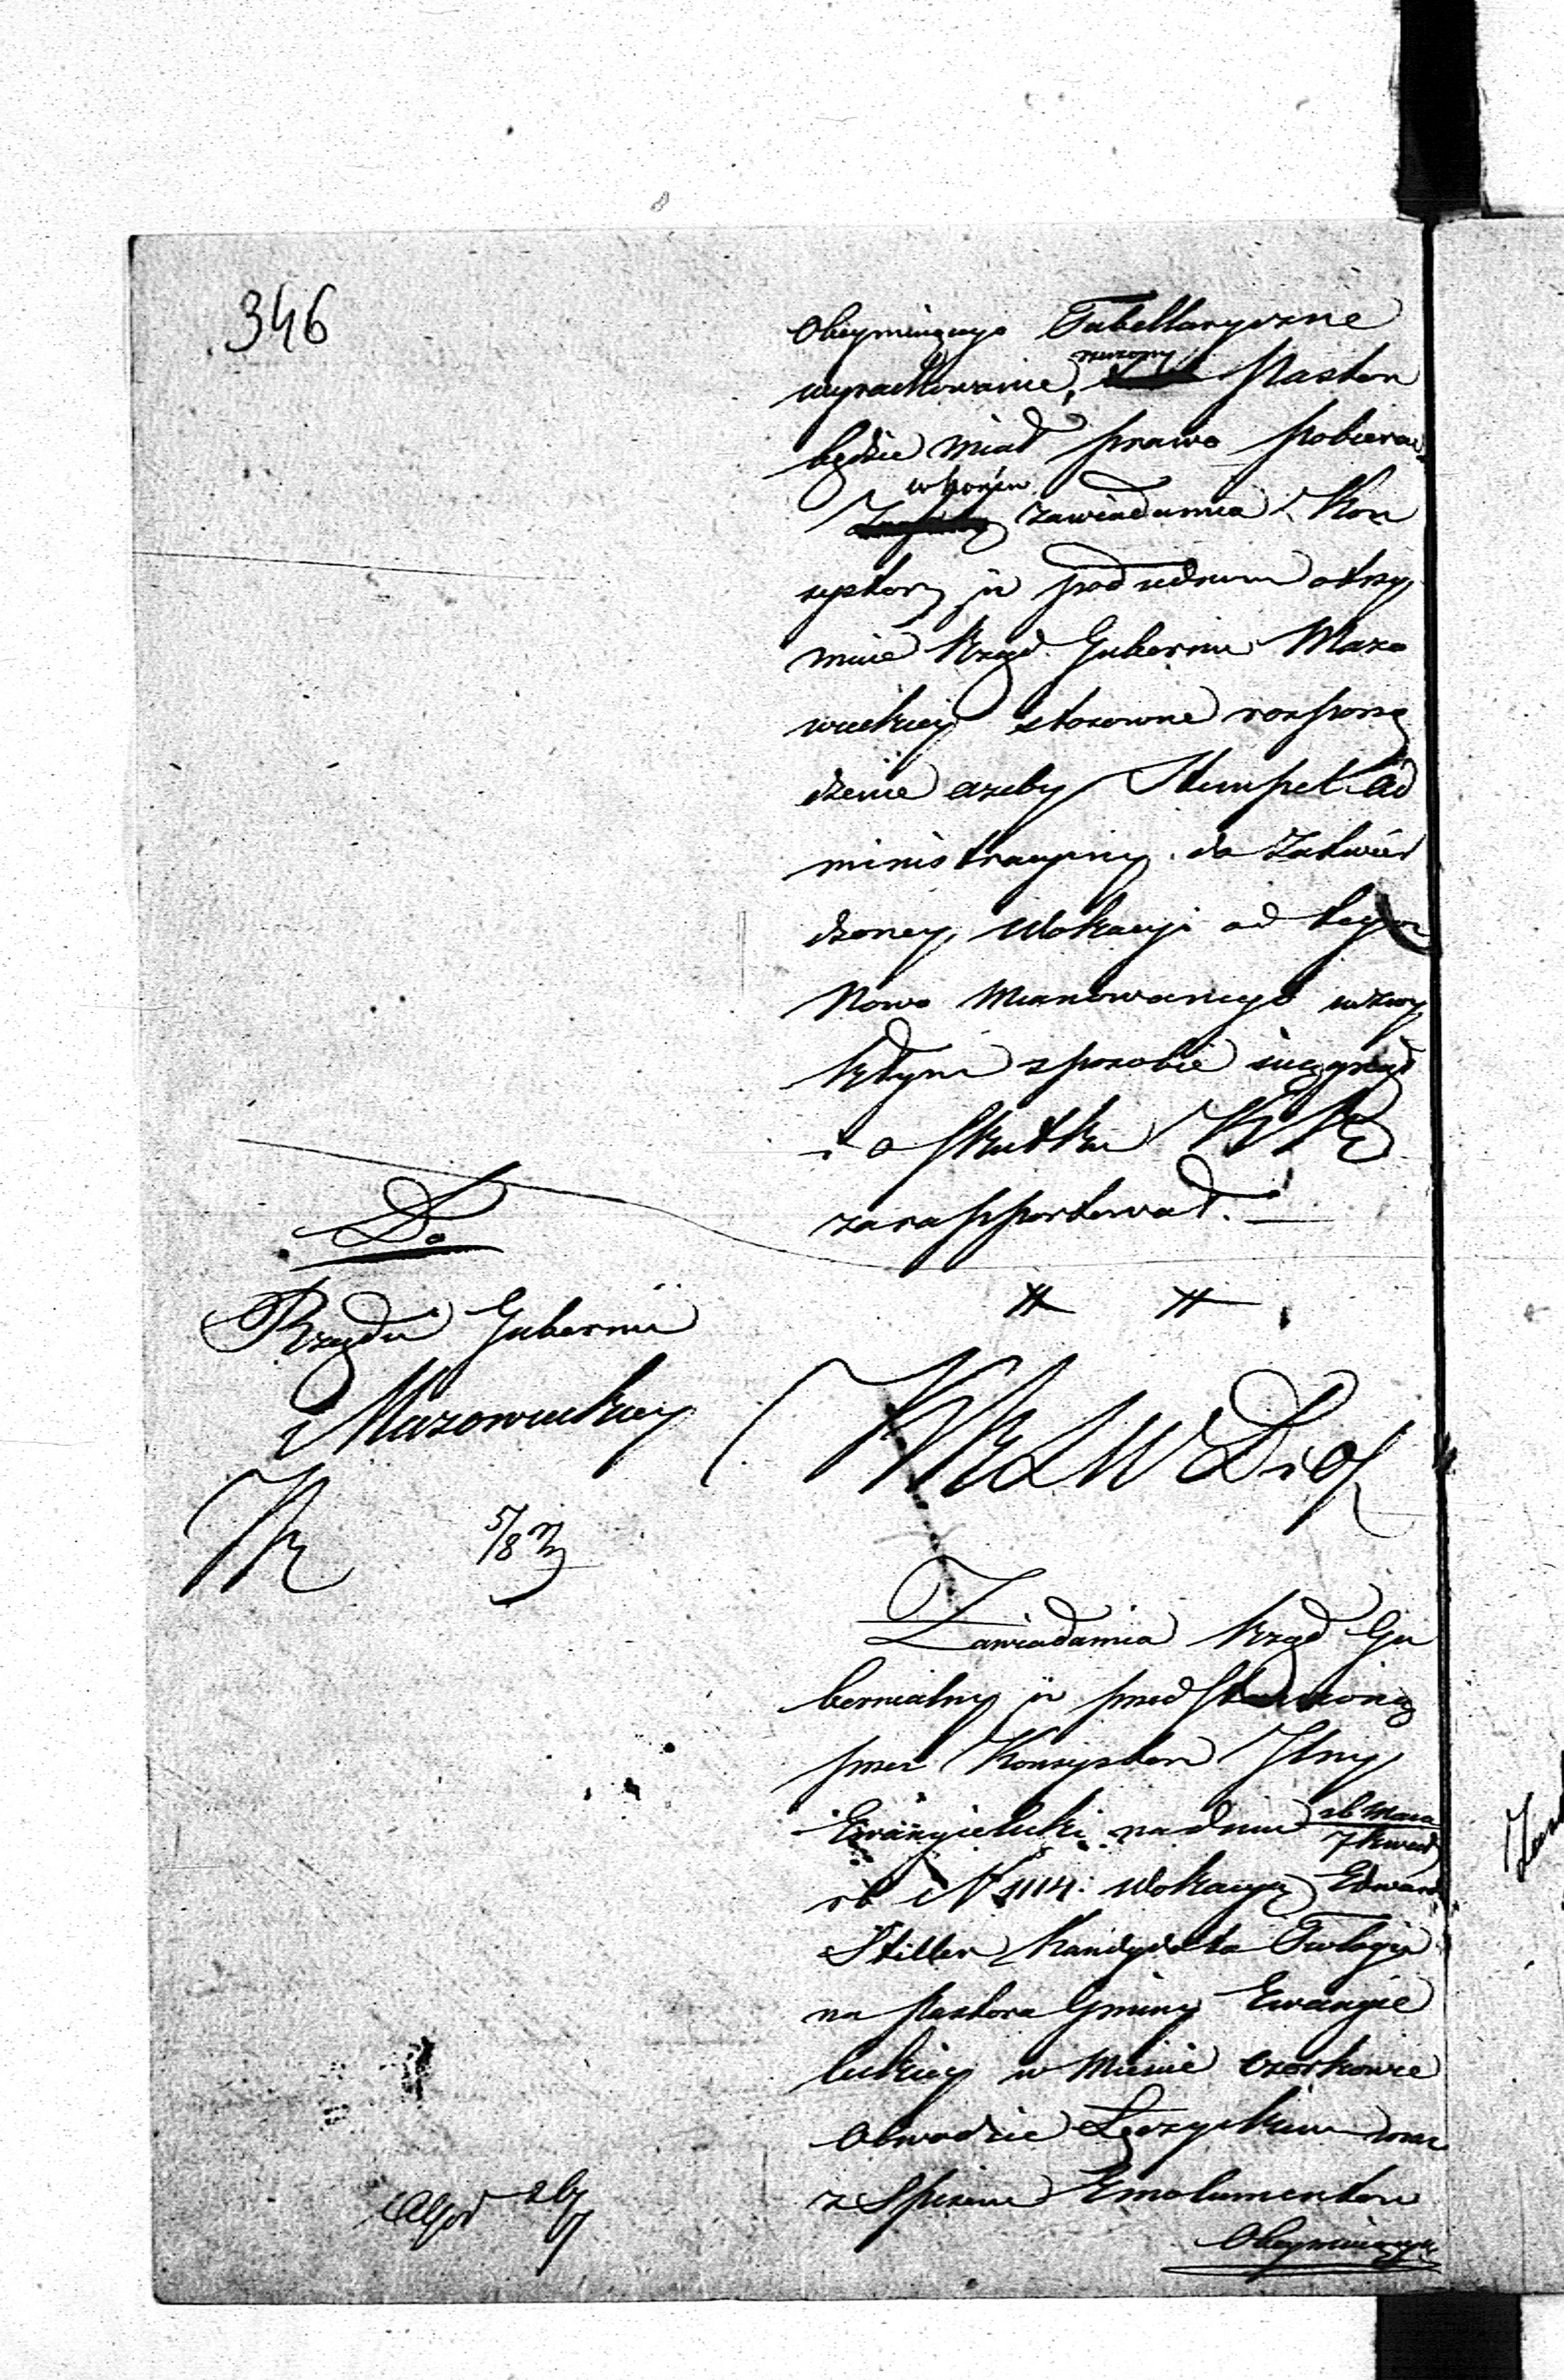 346
Obeymuiącego Tabellaryczne
wyrachowanie, rzeczony Pastor
będzie miał prawo pobierać
w końcu zawiadamia Kon
systorz iż pod
muie Rząd Gubernii Mazo
wieckiey stosowne rozporzą
dzenie azeby Stempel Ad
ministracyiny do Zatwier
dzoney Wokacyi od tegoz
Nowo Mianowanego w zwy
kłym sposobie ściągnął
i o skutku KR
zarapportował. —
Do
Rządu Gubernii
Mazowieckiey
KRSWDiOP
5/8
Zawiadamia Rząd Gu
bernialny iż przedstawioną
przez Konsystorz Jlny
Ewangielicki na dniu 26 Marca / 7 Kwiet
rb N 1114. Wokacyą Edward
Stiller Kandydata Teologii
na Pastora Gminy Ewangie
lickiey w Miescie Ozorkowie
Obwodzie Łęczyckim wraz
z Spisem Emolumentow
Obeymuiącego